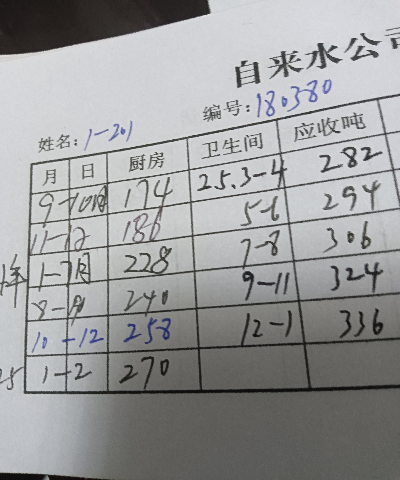 自来水公司
编号:180380
姓名:1-201
月 日 厨房 卫生间 应收吨
9-10月 174 25.3-4 282
11-12 186 5-6 294
年 1-7月 228 7-8 306
240 9-11 324
10-12 258 12-1 336
1-2 270